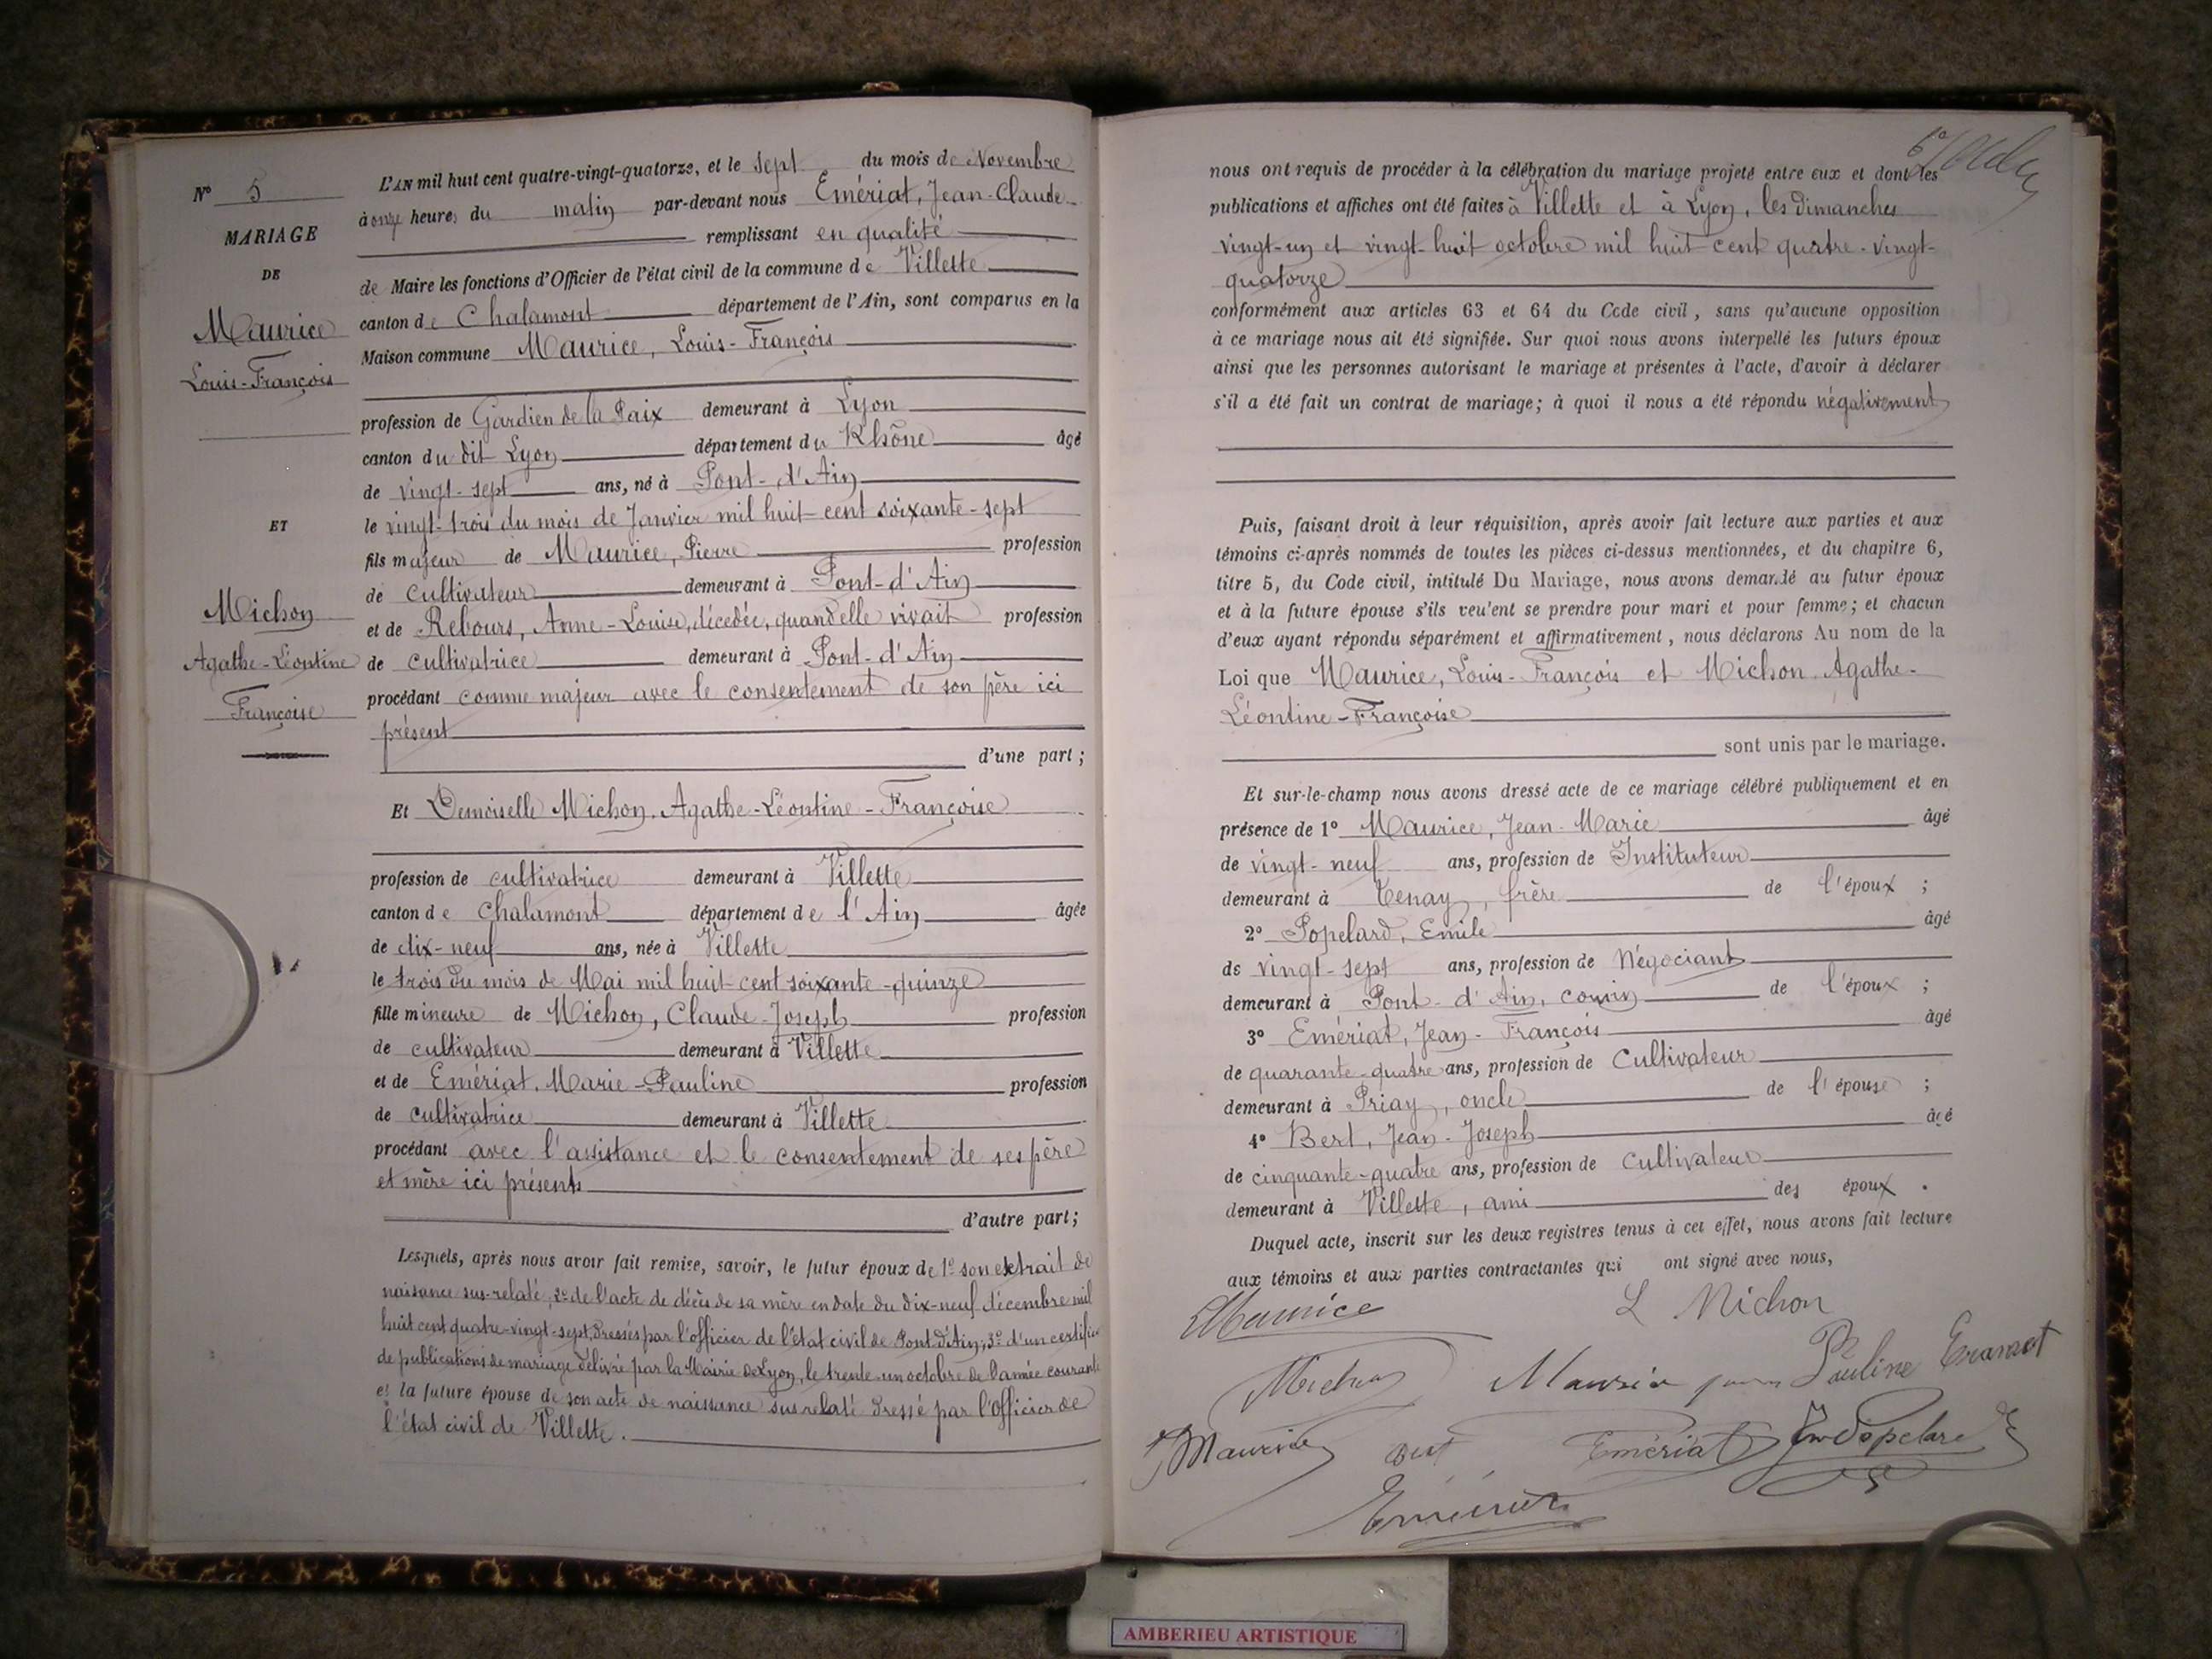 N° 5
MARIAGE
DE
Maurice
Louis-François
ET
Michon
Agathe-Léontine
Françoise
L'AN mil huit cent quatre-vingt-quatorze, et le sept du mois de Novembre
à onze heures du matin par-devant nous Émériat, Jean-Claude
remplissant en qualité
de Maire les fonctions d'Officier de l'état civil de la commune de Villette
canton de Chalamont département de l'Ain, sont comparus en la
Maison commune Maurice, Louis-François
profession de Gardien de la Paix demeurant à Lyon
canton du dit Lyon département du Rhône âgé
de vingt-sept ans, né à Pont-d'Ain
le vingt-trois du mois de Janvier mil huit cent soixante-sept
fils majeur de Maurice, Pierre profession
de cultivateur demeurant à Pont-d'Ain
et de Rebours, Anne-Louise, décedée, quand elle vivait profession
de cultivatrice demeurant à Pont-d'Ain
procédant comme majeur avec le consentement de son père ici
présent
d'une part ;
Et Demoiselle Michon, Agathe-Léontine-Françoise
profession de cultivatrice demeurant à Villette
canton de Chalamont département de l'Ain âgée
de dix-neuf ans, née à Villette
le trois du mois de Mai mil huit cent soixante-quinze
fille mineure de Michon, Claude-Joseph profession
de cultivateur demeurant à Villette
et de Emériat, Marie-Pauline profession
de cultivatrice demeurant à Villette
procédant avec l'assistance et le consentement de ses père
et mère ici présents
d'autre part ;
Lesquels, après nous avoir fait remise, savoir, le futur époux de 1° son extrait de
naissance sus-relaté, 2° de l'acte de décès de sa mère en date du dix-neuf décembre mil
huit cent quatre-vingt-sept, dressés par l'officier de l'état civil de Pont-d'Ain, 3° d'un certificat
de publications de mariage délivré par la Mairie de Lyon, le trente-un octobre de l'année courante
et la future épouse de son acte de naissance sus relaté dressé par l'officier de
l'état civil de Villette.
nous ont requis de procéder à la célébration du mariage projeté entre eux et dont les
publications et affiches ont été faites à Villette et à Lyon, les dimanches
vingt-un et vingt-huit octobre mil huit cent quatre-vingt-
quatorze
conformément aux articles 63 et 64 du Code civil, sans qu'aucune opposition
à ce mariage nous ait été signifiée. Sur quoi nous avons interpellé les futurs époux
ainsi que les personnes autorisant le mariage et présentes à l'acte, d'avoir à déclarer
s'il a été fait un contrat de mariage ; à quoi il nous a été répondu négativement
Puis, faisant droit à leur réquisition, après avoir fait lecture aux parties et aux
témoins ci-après nommés de toutes les pièces ci-dessus mentionnées, et du chapitre 6,
titre 5, du Code civil, intitulé Du Mariage, nous avons demandé au futur époux
et à la future épouse s'ils veulent se prendre pour mari et pour femme ; et chacun
d'eux ayant répondu séparément et affirmativement, nous déclarons Au nom de la
Loi que Maurice, Louis-François et Michon Agathe-
Léontine-Françoise
sont unis par le mariage.
Et sur-le-champ nous avons dressé acte de ce mariage célébré publiquement et en
présence de 1° Maurice, Jean-Marie âgé
de vingt-neuf ans, profession de Instituteur
demeurant à Tenay, frère de l'époux ;
2° Popelard, Emile âgé
de vingt-sept ans, profession de Négociant
demeurant à Pont-d'Ain, cousin de l'époux ;
3° Emériat, Jean-François âgé
de quarante-quatre ans, profession de Cultivateur
demeurant à Priay, oncle de l'épouse ;
4° Bert, Jean-Joseph âgé
de cinquante-quatre ans, profession de Cultivateur
demeurant à Villette, ami des époux.
Duquel acte, inscrit sur les deux registres tenus à cet effet, nous avons fait lecture
aux témoins et aux parties contractantes qui ont signé avec nous,
LMaurice L Michon
Michon Pauline
Maurice Emériat
AMBERIEU ARTISTIQUE